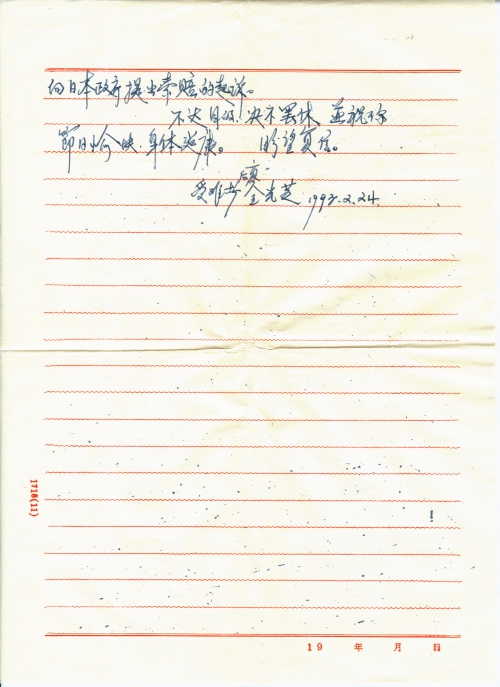 向日本政府提出索赔的起诉。
不达目的 决不罢休 并祝你
节日愉快 身体健康。 盼望复信。
受难者 廖光芝 1993.2.24
1718(11)
19 年 月 日